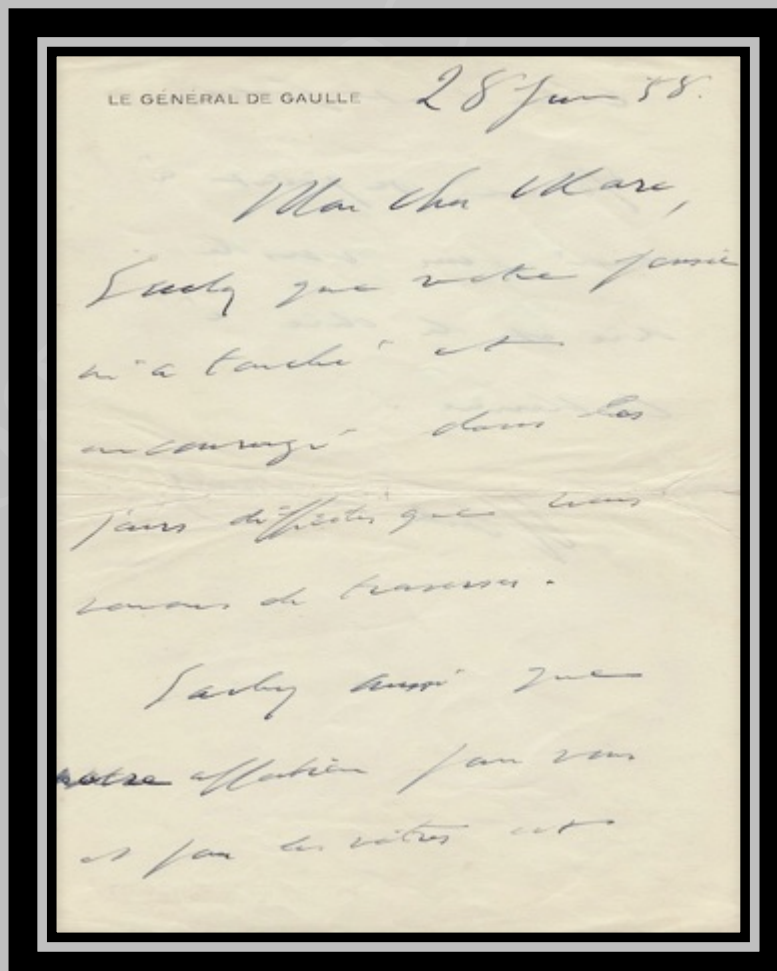 LE GÉNÉRAL DE GAULLE
28 Juin 58.
Mon cher Marc,
Sachez que votre pensée
m'a touché et
encouragé dans les
jours difficiles que nous
venons de traverser.
Sachez aussi que
notre affection pour vous
et pour les vôtres est